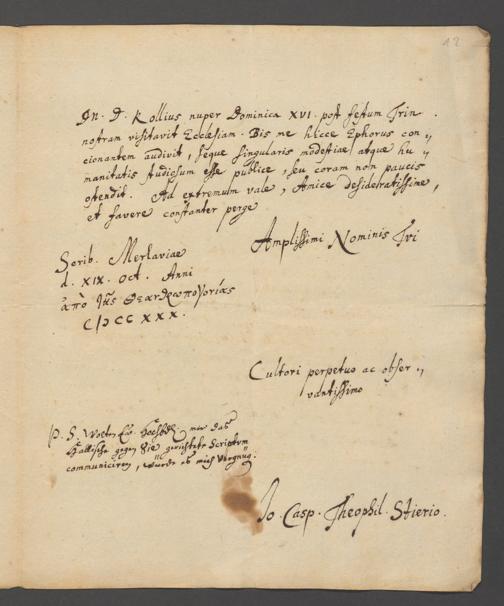 12
Dn. D. Kollius nuper Dominica XVI. post festum Trin.
nostram visitavit Ecclesiam. Bis me hicce Ephorus con„
cionantem audivit, seque singularis modestiae atque hu„
manitatis studiosum esse publice, seu coram non paucis
ostendit. Ad extremum vale, Amice desideratissime,
et favere constanter perge
Amplissimi Nominis Tui
Scrib. Merlaviae
d. XIX. Oct. Anni
ἀπὸ τῆς Θεανθρωπογονίας
CIƆCCXXX.
Cultori perpetuo ac obser„
vantissimo
P. S. Wolten Ew. mir das
Hällische gegen Sie gerichtete Scriptum
communiciren, würde es mich vergnüg.
Jo. Casp. Theophil. Stierio.